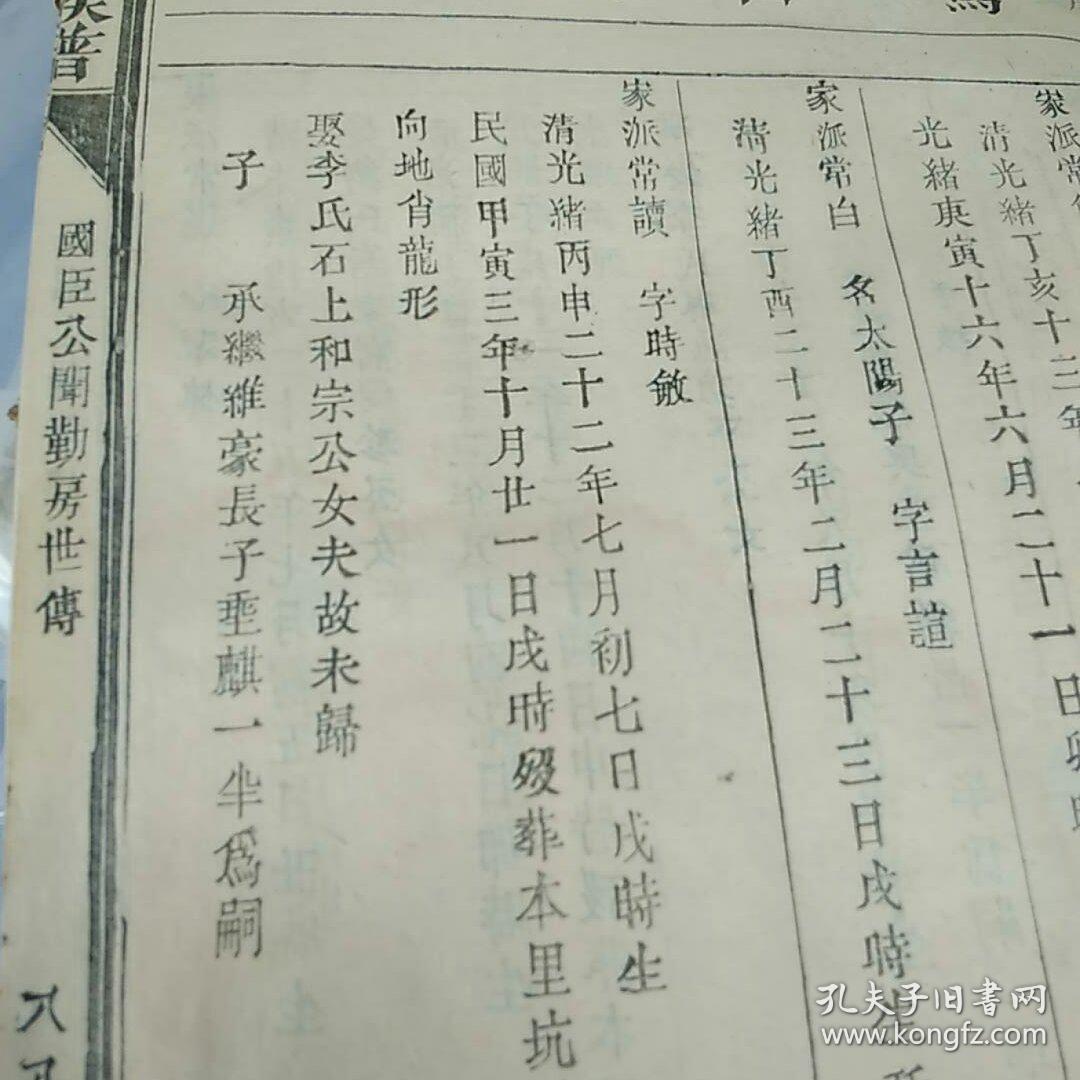 家派常
清光緒丁亥十三年
光緒庚寅十六年六月二十一日卯時
家派常白 名太陽子 字言諠
清光緒丁酉二十三年二月二十三日戌時生
家派常讀 字時敏
清光緒丙申二十二年七月初七日戌時生
民國甲寅三年十月廿一日戌時歿葬本里坑
向地肖龍形
娶李氏石上和宗公女夫故未歸
子 承繼維豪長子垂麒一半爲嗣
族譜
國臣公開勤房世傳
八
孔夫子旧书网
www.kongfz.com